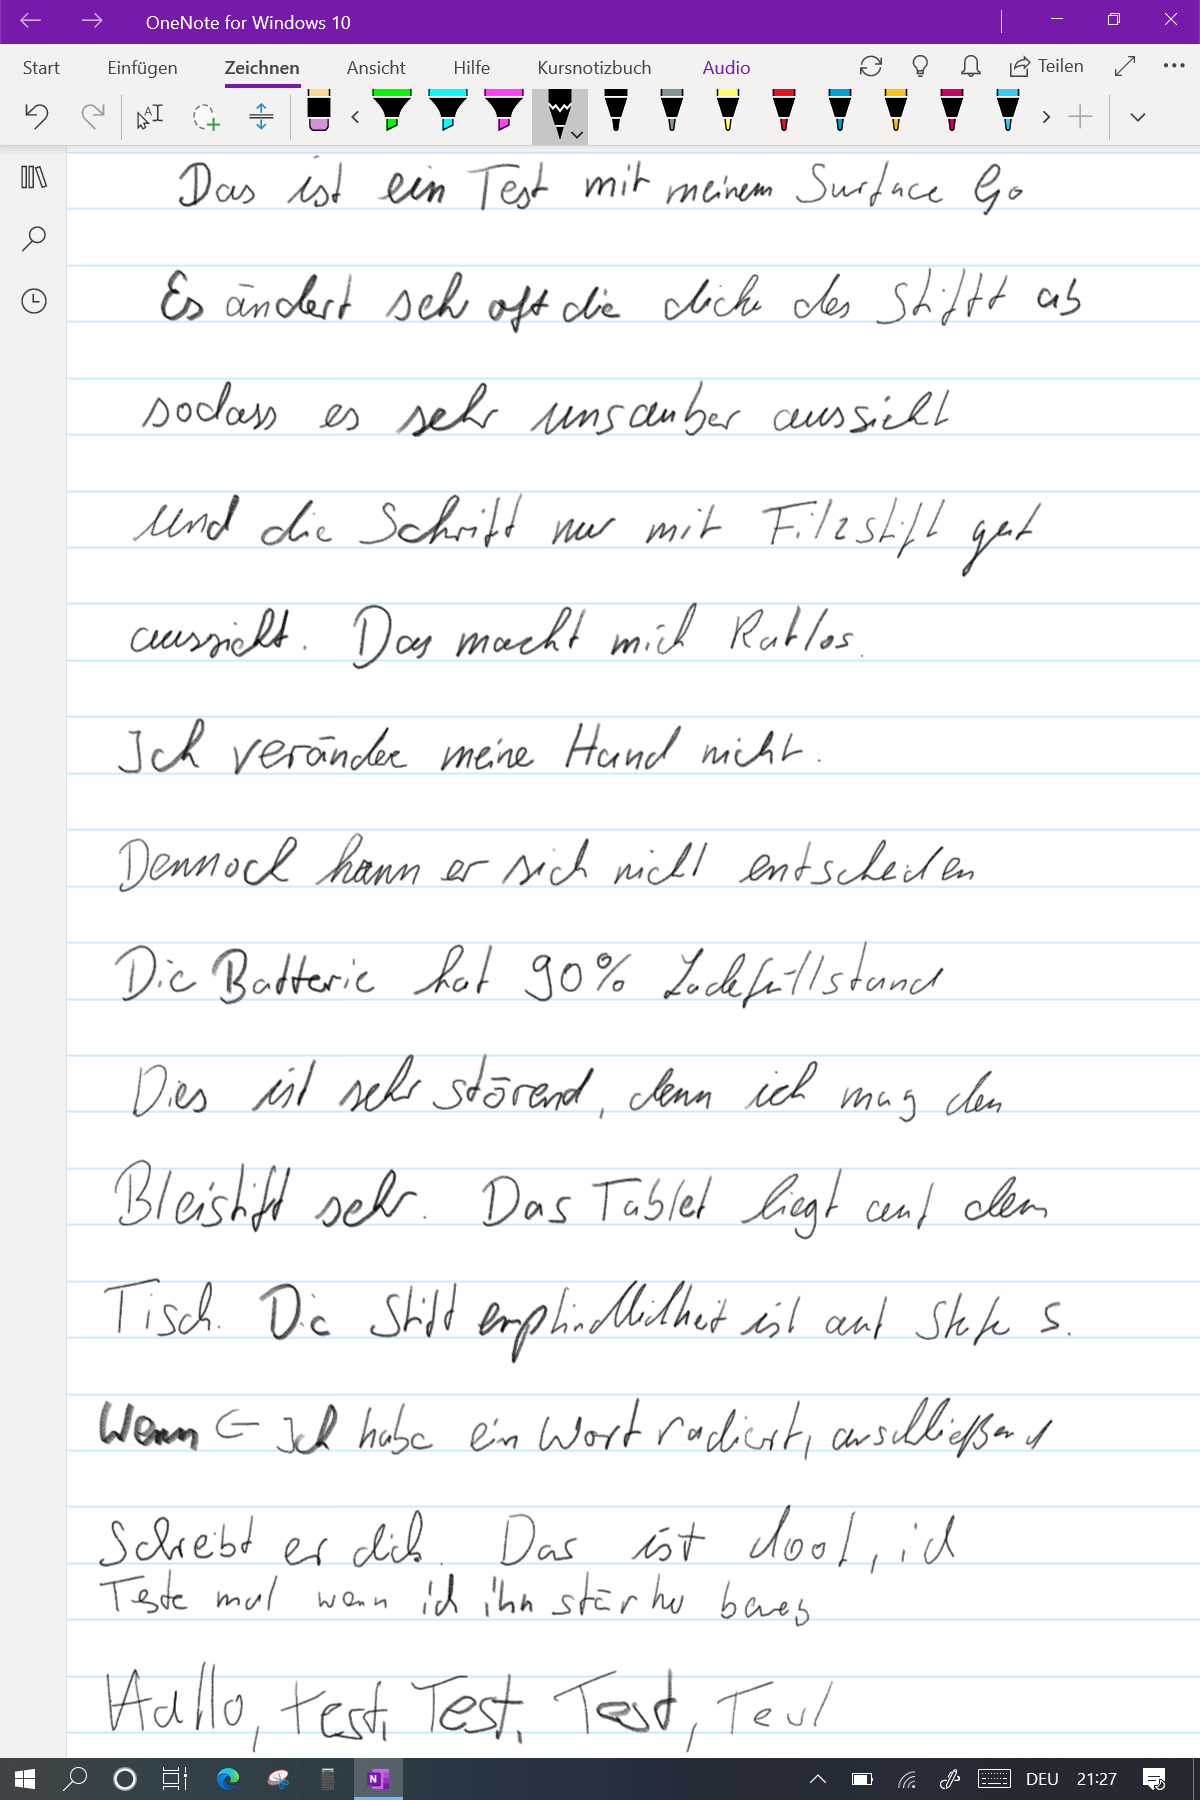 OneNote for Windows 10
Start Einfügen Zeichnen Ansicht Hilfe Kursnotizbuch Audio Teilen
Das ist ein Test mit meinem Surface Go
Es ändert sehr oft die dicke des Stift ab
sodass es sehr unsauber aussieht
und die Schrift nur mit Filzstift gut
aussieht. Das macht mich Ratlos.
Ich verändere meine Hand nicht.
Dennoch kann er sich nicht entscheiden
Die Batterie hat 90% Ladefüllstand
Dies ist sehr störend, denn ich mag den
Bleistift sehr. Das Tablet liegt auf dem
Tisch. Die Stift empfindlichkeit ist auf Stufe 5.
Wenn ← Ich habe ein Wort radiert, anschließend
Schreibt er dick. Das ist doof, ich
Teste mal wenn ich ihn stärker
Hallo, test, Test, Test, Test
DEU 21:27